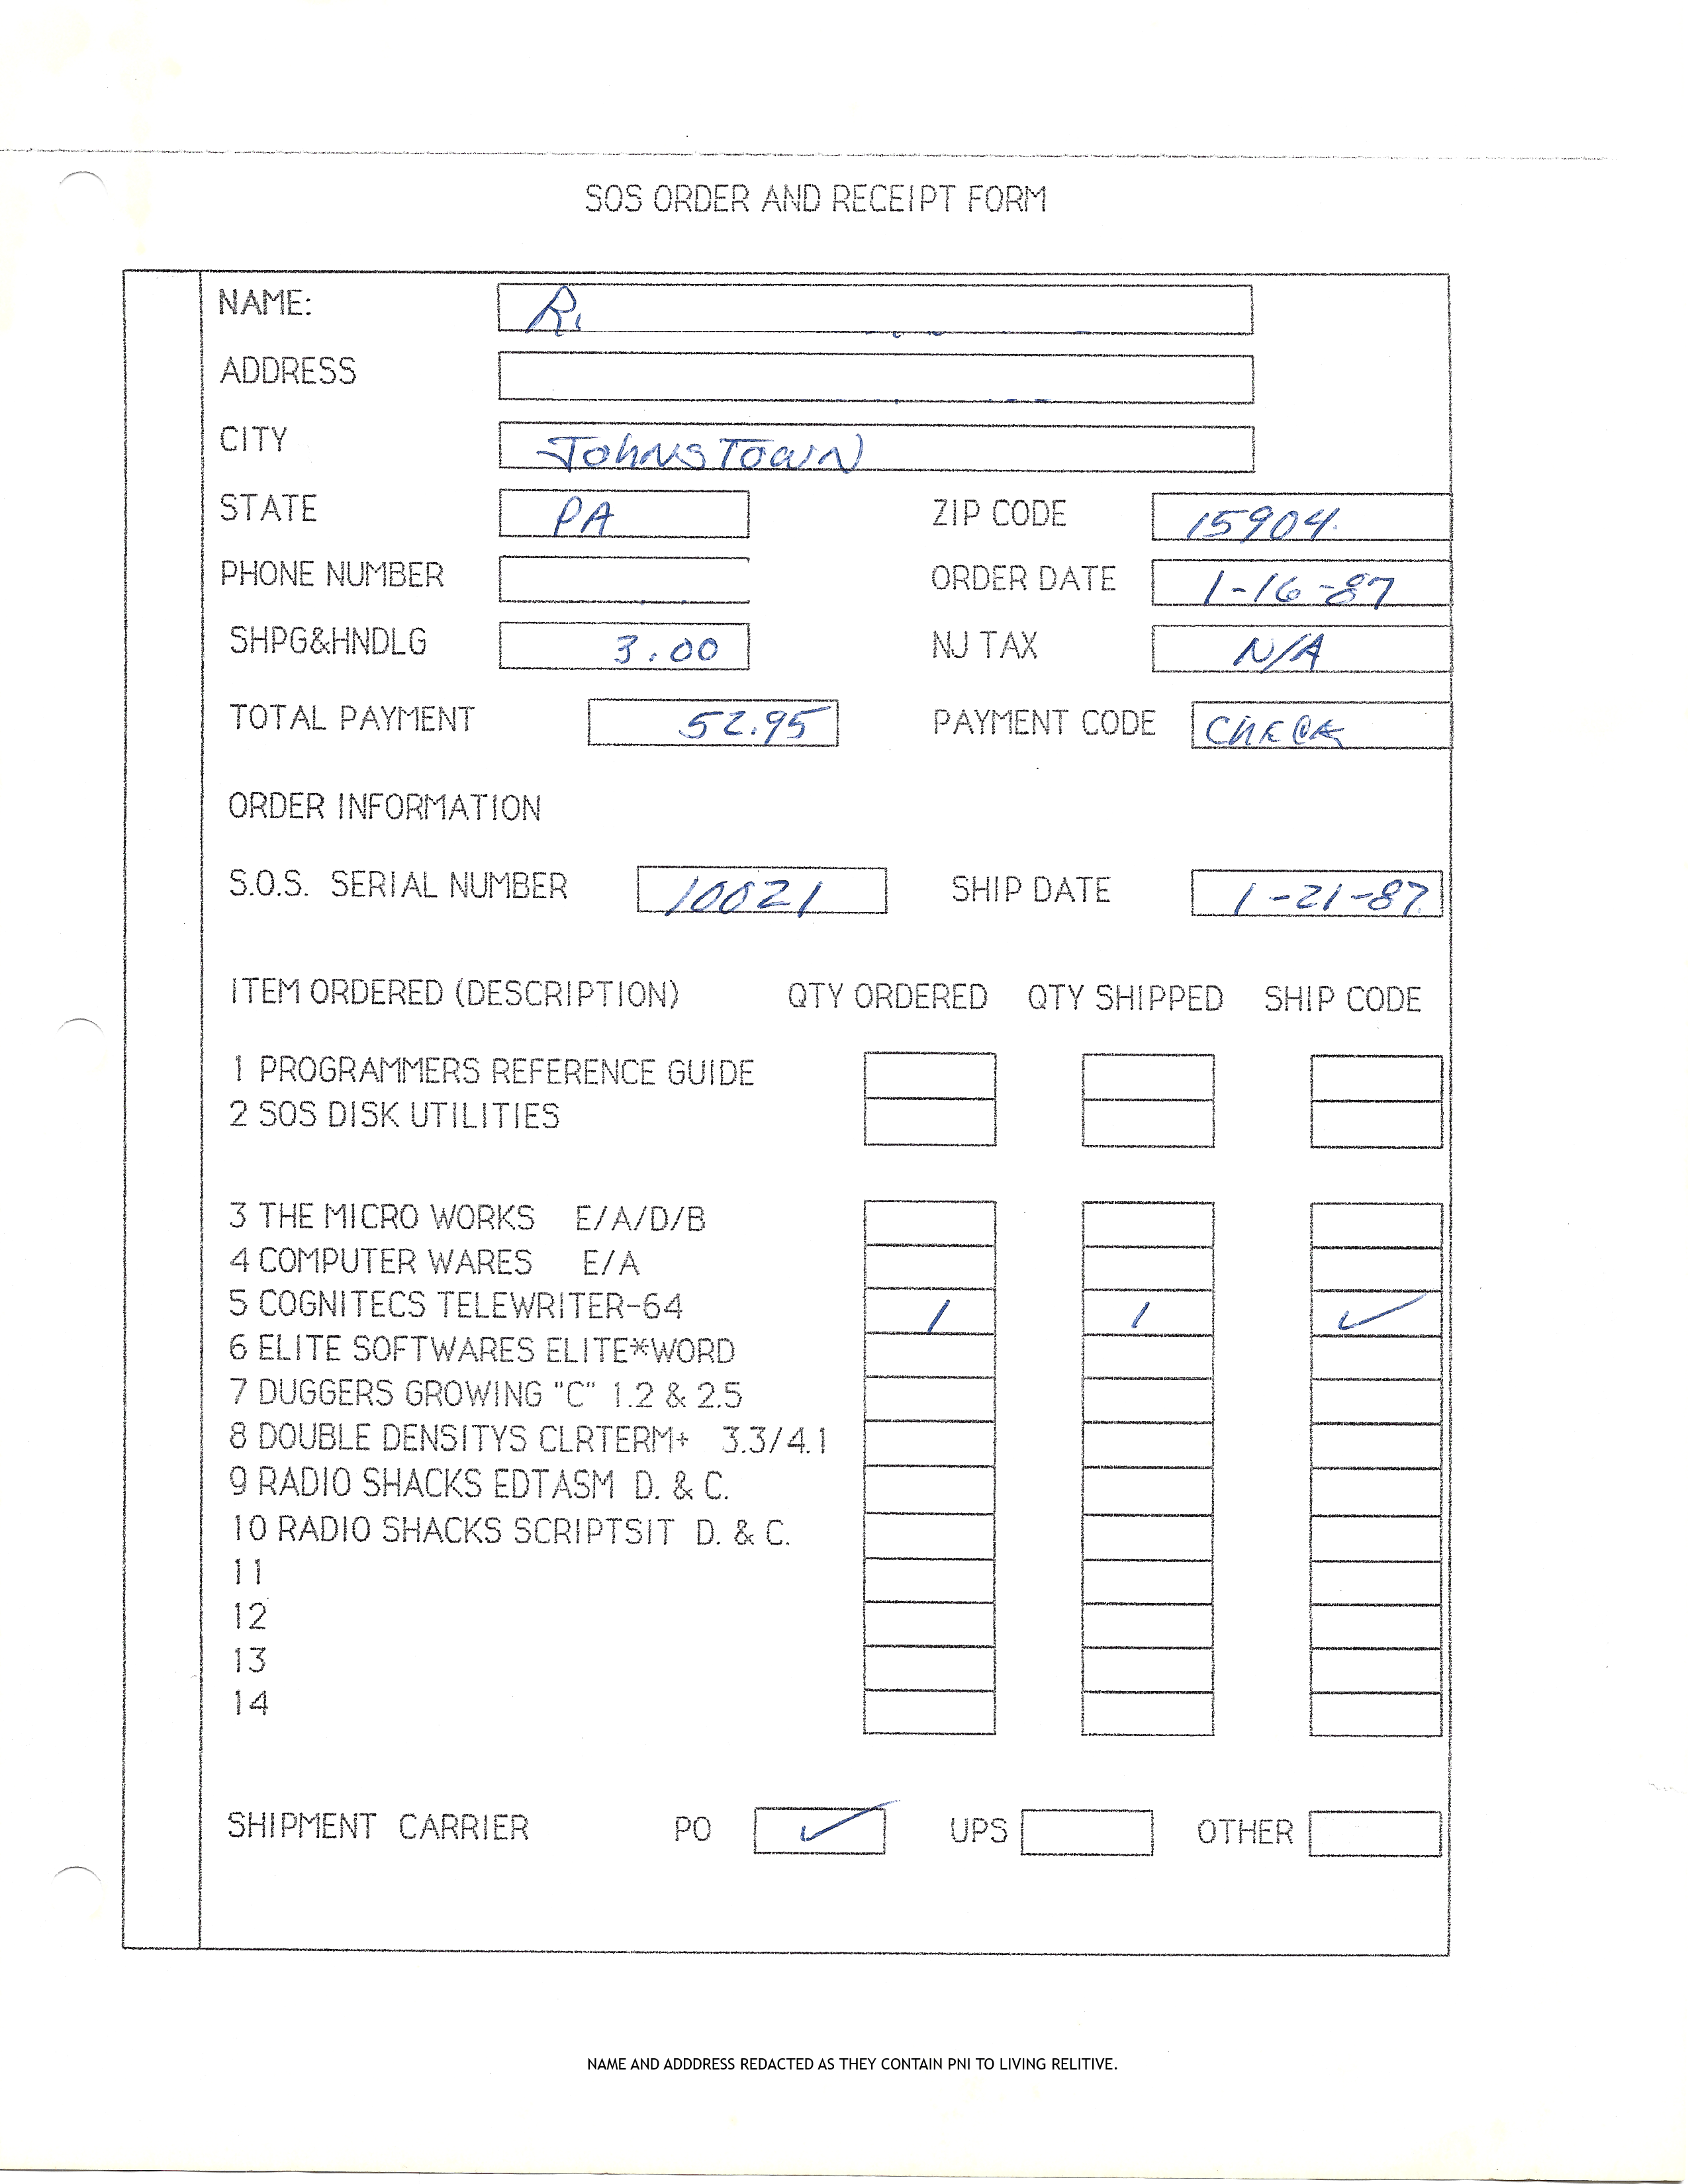 SOS ORDER AND RECEIPT FORM
NAME: R.
ADDRESS
CITY JOHNSTOWN
STATE PA ZIP CODE 15904
PHONE NUMBER ORDER DATE 1-16-87
SHPG&HNDLG 3.00 NJ TAX N/A
TOTAL PAYMENT 52.95 PAYMENT CODE CHECK
ORDER INFORMATION
S.O.S. SERIAL NUMBER 10021 SHIP DATE 1-21-87
ITEM ORDERED (DESCRIPTION) QTY ORDERED QTY SHIPPED SHIP CODE
1 PROGRAMMERS REFERENCE GUIDE
2 SOS DISK UTILITIES
3 THE MICRO WORKS E/A/D/B
4 COMPUTER WARES E/A
5 COGNITECS TELEWRITER-64 1 1 ✓
6 ELITE SOFTWARES ELITE*WORD
7 DUGGERS GROWING "C" 1.2 & 2.5
8 DOUBLE DENSITYS CLRTERM+ 3.3/4.1
9 RADIO SHACKS EDTASM D. & C.
10 RADIO SHACKS SCRIPTSIT D. & C.
11
12
13
14
SHIPMENT CARRIER PO ✓ UPS OTHER
NAME AND ADDDRESS REDACTED AS THEY CONTAIN PNI TO LIVING RELITIVE.